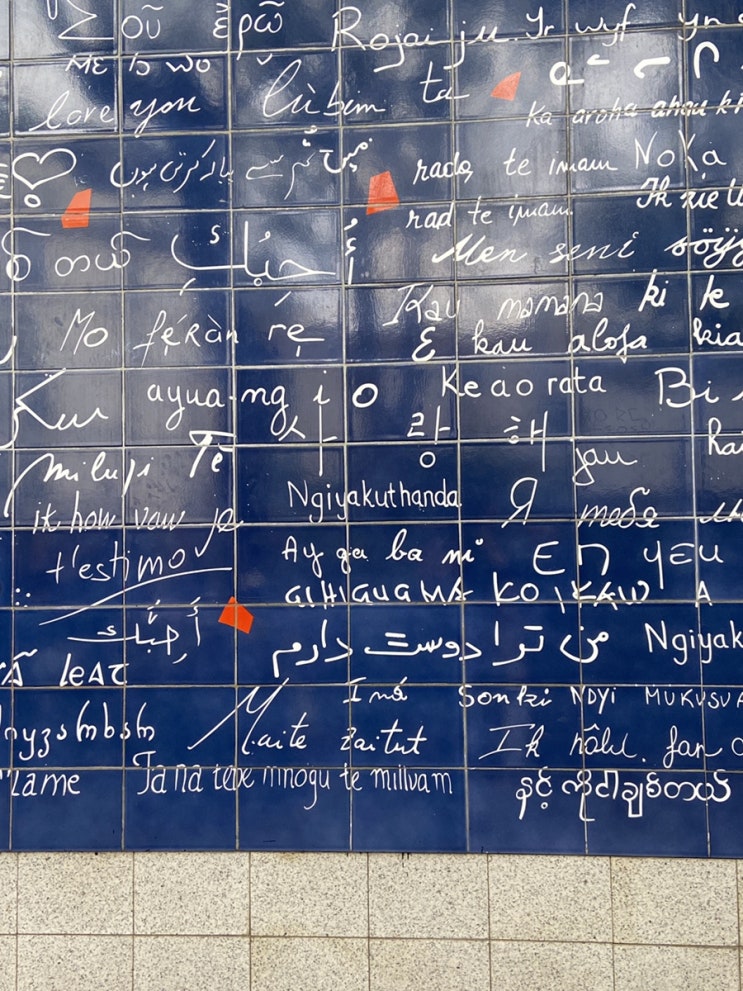 Σοῦ ἐρῶ
Rojai ju. Yr wyf yn
Me lo wo
love you lùbim ta
ka aroha ahau ki
میں تم سے پیار کرتی ہوں
rada te imam Noka
rad te imam Ik zie
أُحِبُّكِ
Men seni söýý
တယ်
Kau manana ki le
Mo fẹ́ràn rẹ
E kau alofa kia
Ku ayua-ng i o Ke ao rata Bi
사랑해
milupi Te jau
Ngiyakuthanda Я тебя
ik how vaw je
t'estimo Ay ga ba ni En yeu
GIHIGUGMA KO IKAW A
أُحِبُّكَ
من ترا دوست دارم Ngiyak
leat
Iná sonki Ndyi mukusua
Maite zaitut Ik hâld fan
lame Ja na tebe mnogu te milluam
နင့် ကိုငါချစ်တယ်